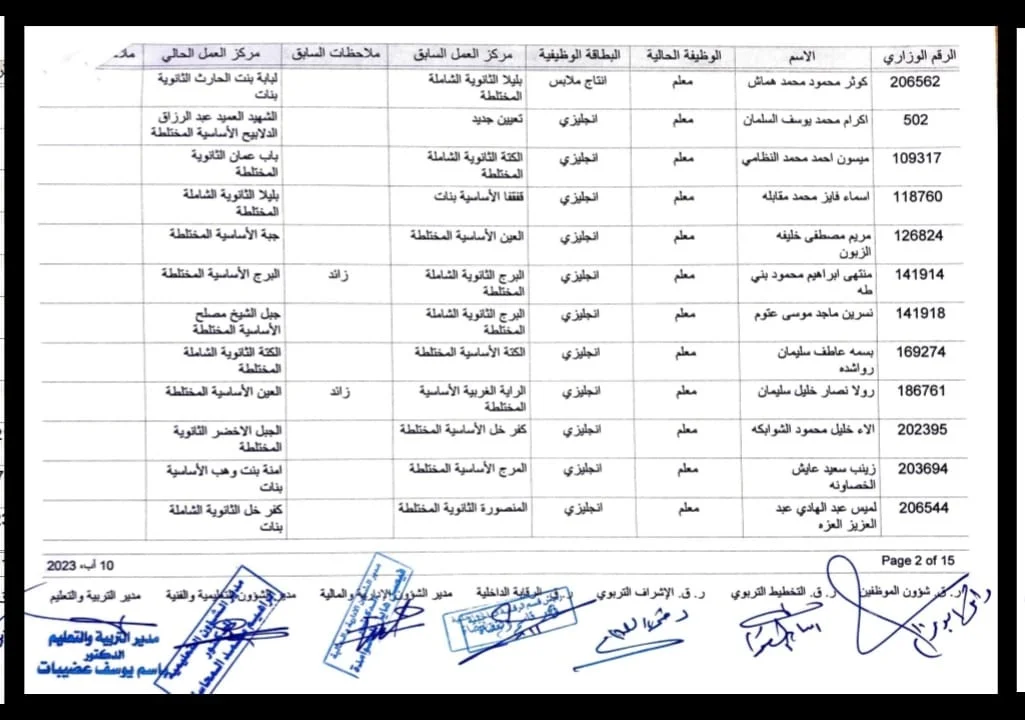 الرقم الوزاري الاسم الوظيفة الحالية البطاقة الوظيفية مركز العمل السابق ملاحظات السابق مركز العمل الحالي
206562 كوثر محمود محمد هماش معلم انتاج ملابس بليلا الثانوية الشاملة المختلطة لبابة بنت الحارث الثانوية بنات
502 اكرام محمد يوسف السلمان معلم انجليزي تعيين جديد الشهيد العميد عبد الرزاق الدلابيح الأساسية المختلطة
109317 ميسون احمد محمد النظامي معلم انجليزي الكتة الثانوية الشاملة المختلطة باب عمان الثانوية المختلطة
118760 اسماء فايز محمد مقابله معلم انجليزي قفقفا الأساسية بنات بليلا الثانوية الشاملة المختلطة
126824 مريم مصطفى خليفه الزبون معلم انجليزي العين الأساسية المختلطة جبة الأساسية المختلطة
141914 منتهى ابراهيم محمود بني طه معلم انجليزي البرج الثانوية الشاملة المختلطة زائد البرج الأساسية المختلطة
141918 نسرين ماجد موسى عتوم معلم انجليزي البرج الثانوية الشاملة المختلطة جبل الشيخ مصلح الأساسية المختلطة
169274 بسمه عاطف سليمان رواشده معلم انجليزي الكتة الأساسية المختلطة الكتة الثانوية الشاملة المختلطة
186761 رولا نصار خليل سليمان معلم انجليزي الراية الغربية الأساسية المختلطة زائد العين الأساسية المختلطة
202395 الاء خليل محمود الشوابكه معلم انجليزي كفر خل الأساسية المختلطة الجبل الاخضر الثانوية المختلطة
203694 زينب سعيد عايش الخصاونه معلم انجليزي المرج الأساسية المختلطة امنة بنت وهب الأساسية بنات
206544 لميس عبد الهادي عبد العزيز العزه معلم انجليزي المنصورة الثانوية المختلطة كفر خل الثانوية الشاملة بنات
Page 2 of 15 10 آب، 2023
ر. ق. شؤون الموظفين ر. ق. التخطيط التربوي ر. ق. الإشراف التربوي ر. ق. الرقابة الداخلية مدير الشؤون الإدارية والمالية مدير الشؤون التعليمية والفنية مدير التربية والتعليم
مدير التربية والتعليم
الدكتور
باسم يوسف عضيبات